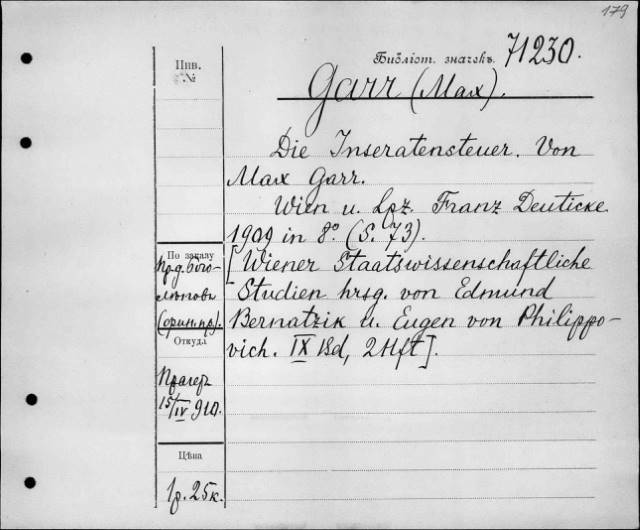 179
Библіот. значекъ 71230.
Инв. №
Garr (Max).
Die Inseratensteuer. Von
Max Garr.
Wien u. Lpz. Franz Deuticke
1909 in 8º (S. 73).
[Wiener Staatswissenschaftliche
Studien hrsg. von Edmund
Bernatzik u. Eugen von Philippo-
vich. IX Bd, 2 Hft].
По заказу
Прд. Бого-
лѣповъ
(ориг. пр).
Откуда
Прагеръ
15/IV 910.
Цѣна
1р. 25к.